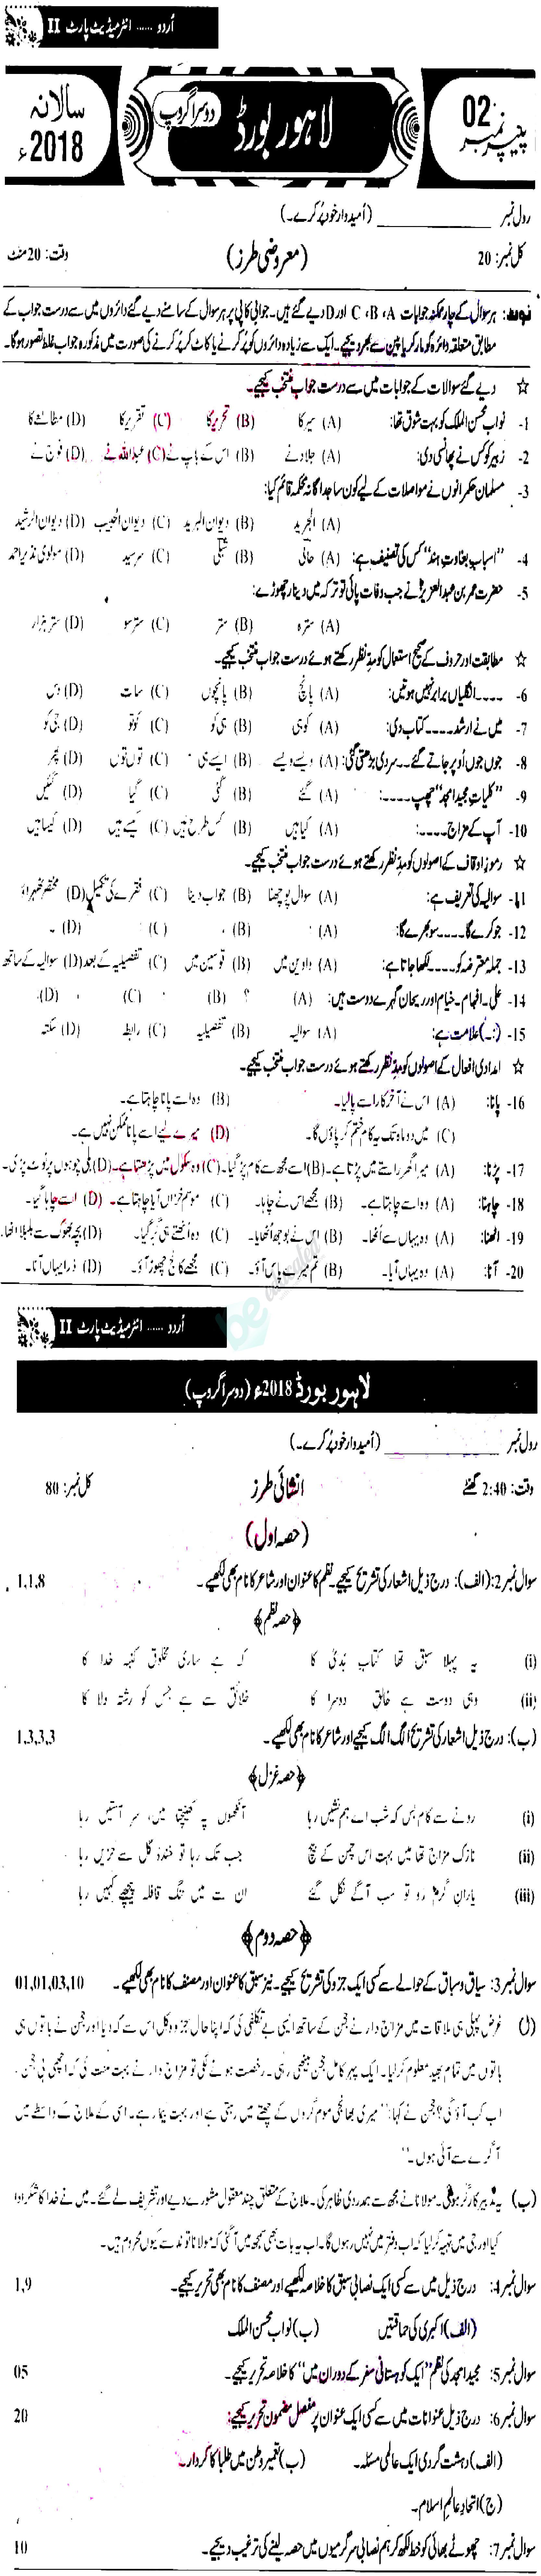 اُردو ...... انٹرمیڈیٹ پارٹ II
سالانہ 2018ء
لاہور بورڈ
دوسرا گروپ
پیپر نمبر 02
رول نمبر ____________ (اُمیدوار خود پُر کرے۔)
کل نمبر: 20 (معروضی طرز) وقت: 20 منٹ
نوٹ: ہر سوال کے چار ممکنہ جوابات A، B، C اور D دیے گئے ہیں۔ جوابی کاپی پر ہر سوال کے سامنے دیے گئے دائروں میں سے درست جواب کے
مطابق متعلقہ دائرہ کو مارکر یا پین سے بھر دیجیے۔ ایک سے زیادہ دائروں کو پُر کرنے یا کاٹ کر پُر کرنے کی صورت میں مذکورہ جواب غلط تصور ہوگا۔
☆ دیے گئے سوالات کے جوابات میں سے درست جواب منتخب کیجیے۔
1- نواب محسن الملک کو بہت شوق تھا: (A) سیر کا (B) تحریر کا (C) تقریر کا (D) مطالعے کا
2- زبیر کو کس نے پھانسی دی: (A) جلاد نے (B) اس کے باپ نے (C) عبداللہ نے (D) فوج نے
3- مسلمان حکمرانوں نے مواصلات کے لیے کون سا جداگانہ محکمہ قائم کیا:
(A) الجرید (B) دیوان البرید (C) دیوان الحبیب (D) دیوان الرشید
4- "اسباب بغاوتِ ہند" کس کی تصنیف ہے: (A) حالی (B) شبلی (C) سرسید (D) مولوی نذیر احمد
5- حضرت عمر بن عبدالعزیزؒ نے جب وفات پائی تو ترکہ میں دینار چھوڑے:
(A) سترہ (B) ستر (C) سترسو (D) ستر ہزار
☆ مطابقت اور حروف کے صحیح استعمال کو مدِنظر رکھتے ہوئے درست جواب منتخب کیجیے۔
6- ۔۔۔۔ انگلیاں برابر نہیں ہوتیں: (A) پانچ (B) پانچوں (C) سات (D) دس
7- میں نے ارشد ۔۔۔۔ کتاب دی: (A) کو ہی (B) ہی کو (C) کو تو (D) جی کو
8- جوں جوں اُوپر جاتے گئے ۔۔ سردی بڑھتی گئی: (A) ویسے ویسے (B) ایسے ہی (C) توں توں (D) پھر
9- "کلیاتِ مجید امجد" چھپ ۔۔۔۔: (A) گئے (B) گئی (C) گیا (D) گئیں
10- آپ کے مزاج ۔۔۔۔: (A) کیا ہیں (B) کس طرح ہیں (C) کیسے ہیں (D) کیسا ہیں
☆ رموزِ اوقاف کے اصولوں کو مدِنظر رکھتے ہوئے درست جواب منتخب کیجیے۔
11- سوالیہ کی تعریف ہے: (A) سوال پوچھنا (B) جواب دینا (C) فقرے کی تکمیل (D) مختصر ٹھہراؤ
12- جو کرے گا ۔۔۔۔ سو بھرے گا: (A) (B) (C) (D)
13- جملہ معترضہ کو ۔۔۔۔ لکھا جاتا ہے: (A) واوین میں (B) قوسین میں (C) تفصیلیہ کے بعد (D) سوالیہ کے ساتھ
14- علی۔ افہام۔ خیام اور ریحان گہرے دوست ہیں: (A) (B) ؟ (C) ، (D)
15- (:۔) علامت ہے: (A) سوالیہ (B) تفصیلیہ (C) رابطہ (D) سکتہ
☆ امدادی افعال کے اصولوں کو مدِنظر رکھتے ہوئے درست جواب منتخب کیجیے۔
16- پانا: (A) اس نے آخر کار اسے پالیا۔ (B) وہ اسے پانا چاہتا ہے۔
(C) میں دو ماہ تک یہ کام ختم کر پاؤں گا۔ (D) میرے لیے اسے پانا ممکن نہیں ہے۔
17- پڑنا: (A) میرا گھر راستے میں پڑتا ہے۔ (B) اسے مجھ سے کام پڑ گیا۔ (C) وہ سکول میں پڑھتا ہے۔ (D) بلی چوہوں پر ٹوٹ پڑی۔
18- چاہنا: (A) وہ اسے چاہتا ہے۔ (B) مجھے اس نے چاہا۔ (C) موسمِ خزاں آیا چاہتا ہے۔ (D) اسے چاہا گیا۔
19- اٹھنا: (A) وہ یہاں سے اُٹھا۔ (B) اس نے بوجھ اُٹھایا۔ (C) وہ اُٹھتے ہی گر گیا۔ (D) بچہ بھوک سے بلبلا اٹھا۔
20- آنا: (A) وہ یہاں آیا۔ (B) تم میرے پاس آؤ۔ (C) مجھے کالج چھوڑ آؤ۔ (D) ذرا یہاں آنا۔
اُردو ...... انٹرمیڈیٹ پارٹ II
لاہور بورڈ 2018ء (دوسرا گروپ)
رول نمبر ____________ (اُمیدوار خود پُر کرے۔)
وقت: 2:40 گھنٹے انشائی طرز کل نمبر: 80
(حصہ اول)
سوال نمبر 2: (الف): درج ذیل اشعار کی تشریح کیجیے۔ نظم کا عنوان اور شاعر کا نام بھی لکھیے۔ 1,1,8
﴿حصہ نظم﴾
(i) یہ پہلا سبق تھا کتابِ ہُدیٰ کا کہ ہے ساری مخلوق کنبہ خدا کا
(ii) وہی دوست ہے خالقِ دوسرا کا خلائق سے ہے جس کو رشتہ ولا کا
(ب): درج ذیل اشعار کی تشریح الگ الگ کیجیے اور شاعر کا نام بھی لکھیے۔ 1,3,3,3
﴿حصہ غزل﴾
(i) رونے سے کام بس کہ شب اے ہم نشیں رہا آنکھوں پہ کھینچتا میں، سر آستیں رہا
(ii) نازک مزاج تھا میں بہت اس چمن کے بیچ جب تک رہا تو خندۂ گل سے حزیں رہا
(iii) یارانِ گرم رو تو سب آگے نکل گئے ان سے میں تنگ قافلہ پیچھے کہیں رہا
﴿حصہ دوم﴾
سوال نمبر 3: سیاق و سباق کے حوالے سے کسی ایک جزو کی تشریح کیجیے۔ نیز سبق کا عنوان اور مصنف کا نام بھی لکھیے۔ 01,01,03,10
(ل) غرض پہلی ہی ملاقات میں مزاج دار نے حجن کے ساتھ ایسی بے تکلفی کی کہ اپنا حال جزو و کل اس سے کہہ دیا اور حجن نے باتوں ہی
باتوں میں تمام بھید معلوم کرلیا۔ ایک پہر کامل حجن بیٹھی رہی۔ رخصت ہونے لگی تو مزاج دار نے بہت منت کی کہ اچھی بی حجن،
اب کب آؤ گی؟ حجن نے کہا: "میری بھانجی موم گروں کے چھتے میں رہتی ہے اور بہت بیمار ہے۔ اسی کے علاج کے واسطے میں
آگرے سے آئی ہوں۔"
(ب) یہ تدبیر کارگر ہوئی۔ مولانا نے مجھ سے ہمدردی ظاہر کی۔ علاج کے متعلق چند معقول مشورے دیے اور تشریف لے گئے۔ میں نے خدا کا شکر ادا
کیا اور جی میں تہیہ کرلیا کہ اب دفتر میں نہیں رہوں گا۔ اب یہ بات بھی سمجھ میں آگئی کہ مولانا توند سے کیوں محروم ہیں۔
سوال نمبر 4: درج ذیل میں سے کسی ایک نصابی سبق کا خلاصہ لکھیے اور مصنف کا نام بھی تحریر کیجیے۔ 1,9
(الف) اکبری کی حماقتیں (ب) نواب محسن الملک
سوال نمبر 5: مجید امجد کی نظم "ایک کوہستانی سفر کے دوران میں" کا خلاصہ تحریر کیجیے۔ 05
سوال نمبر 6: درج ذیل عنوانات میں سے کسی ایک عنوان پر مفصل مضمون تحریر کیجیے: 20
(الف) دہشت گردی ایک عالمی مسئلہ۔ (ب) تعمیرِ وطن میں طلبا کا کردار۔
(ج) اتحادِ عالمِ اسلام۔
سوال نمبر 7: چھوٹے بھائی کو خط لکھ کر ہم نصابی سرگرمیوں میں حصہ لینے کی ترغیب دیجیے۔ 10